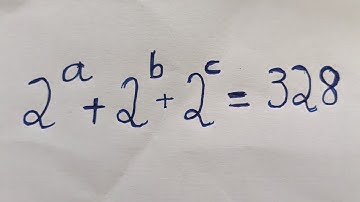 2ᵃ + 2ᵇ + 2ᶜ = 328